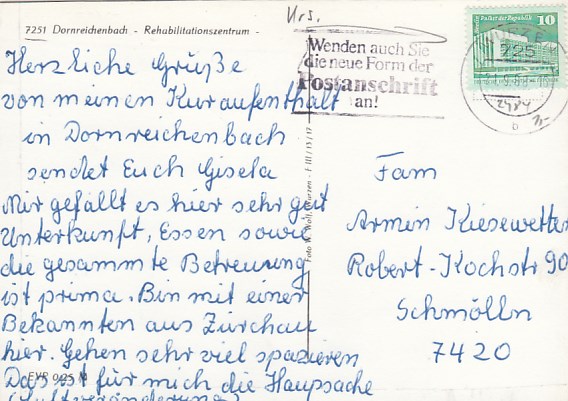 7251 Dornreichenbach - Rehabilitationszentrum -
Herzliche Grüße
von meinen Kuraufenthalt
in Dornreichenbach
sendet Euch Gisela
Mir gefällt es hier sehr gut
Unterkunft, Essen sowie
die gesammte Betreuung
ist prima. Bin mit einer
Bekannten aus Zürchau
hier. Gehen sehr viel spazieren
Das ist für mich die Haupsache
(Luftveränderung)
EVP 0,25 M
Foto W. Wolf, Wurzen - F III/15/17
Wrs.
Wenden auch Sie
die neue Form der
Postanschrift
an!
Palast der Republik 10
WURZEN
725
Fam
Armin Kiesewetter
Robert-Kochstr 90
Schmölln
7420